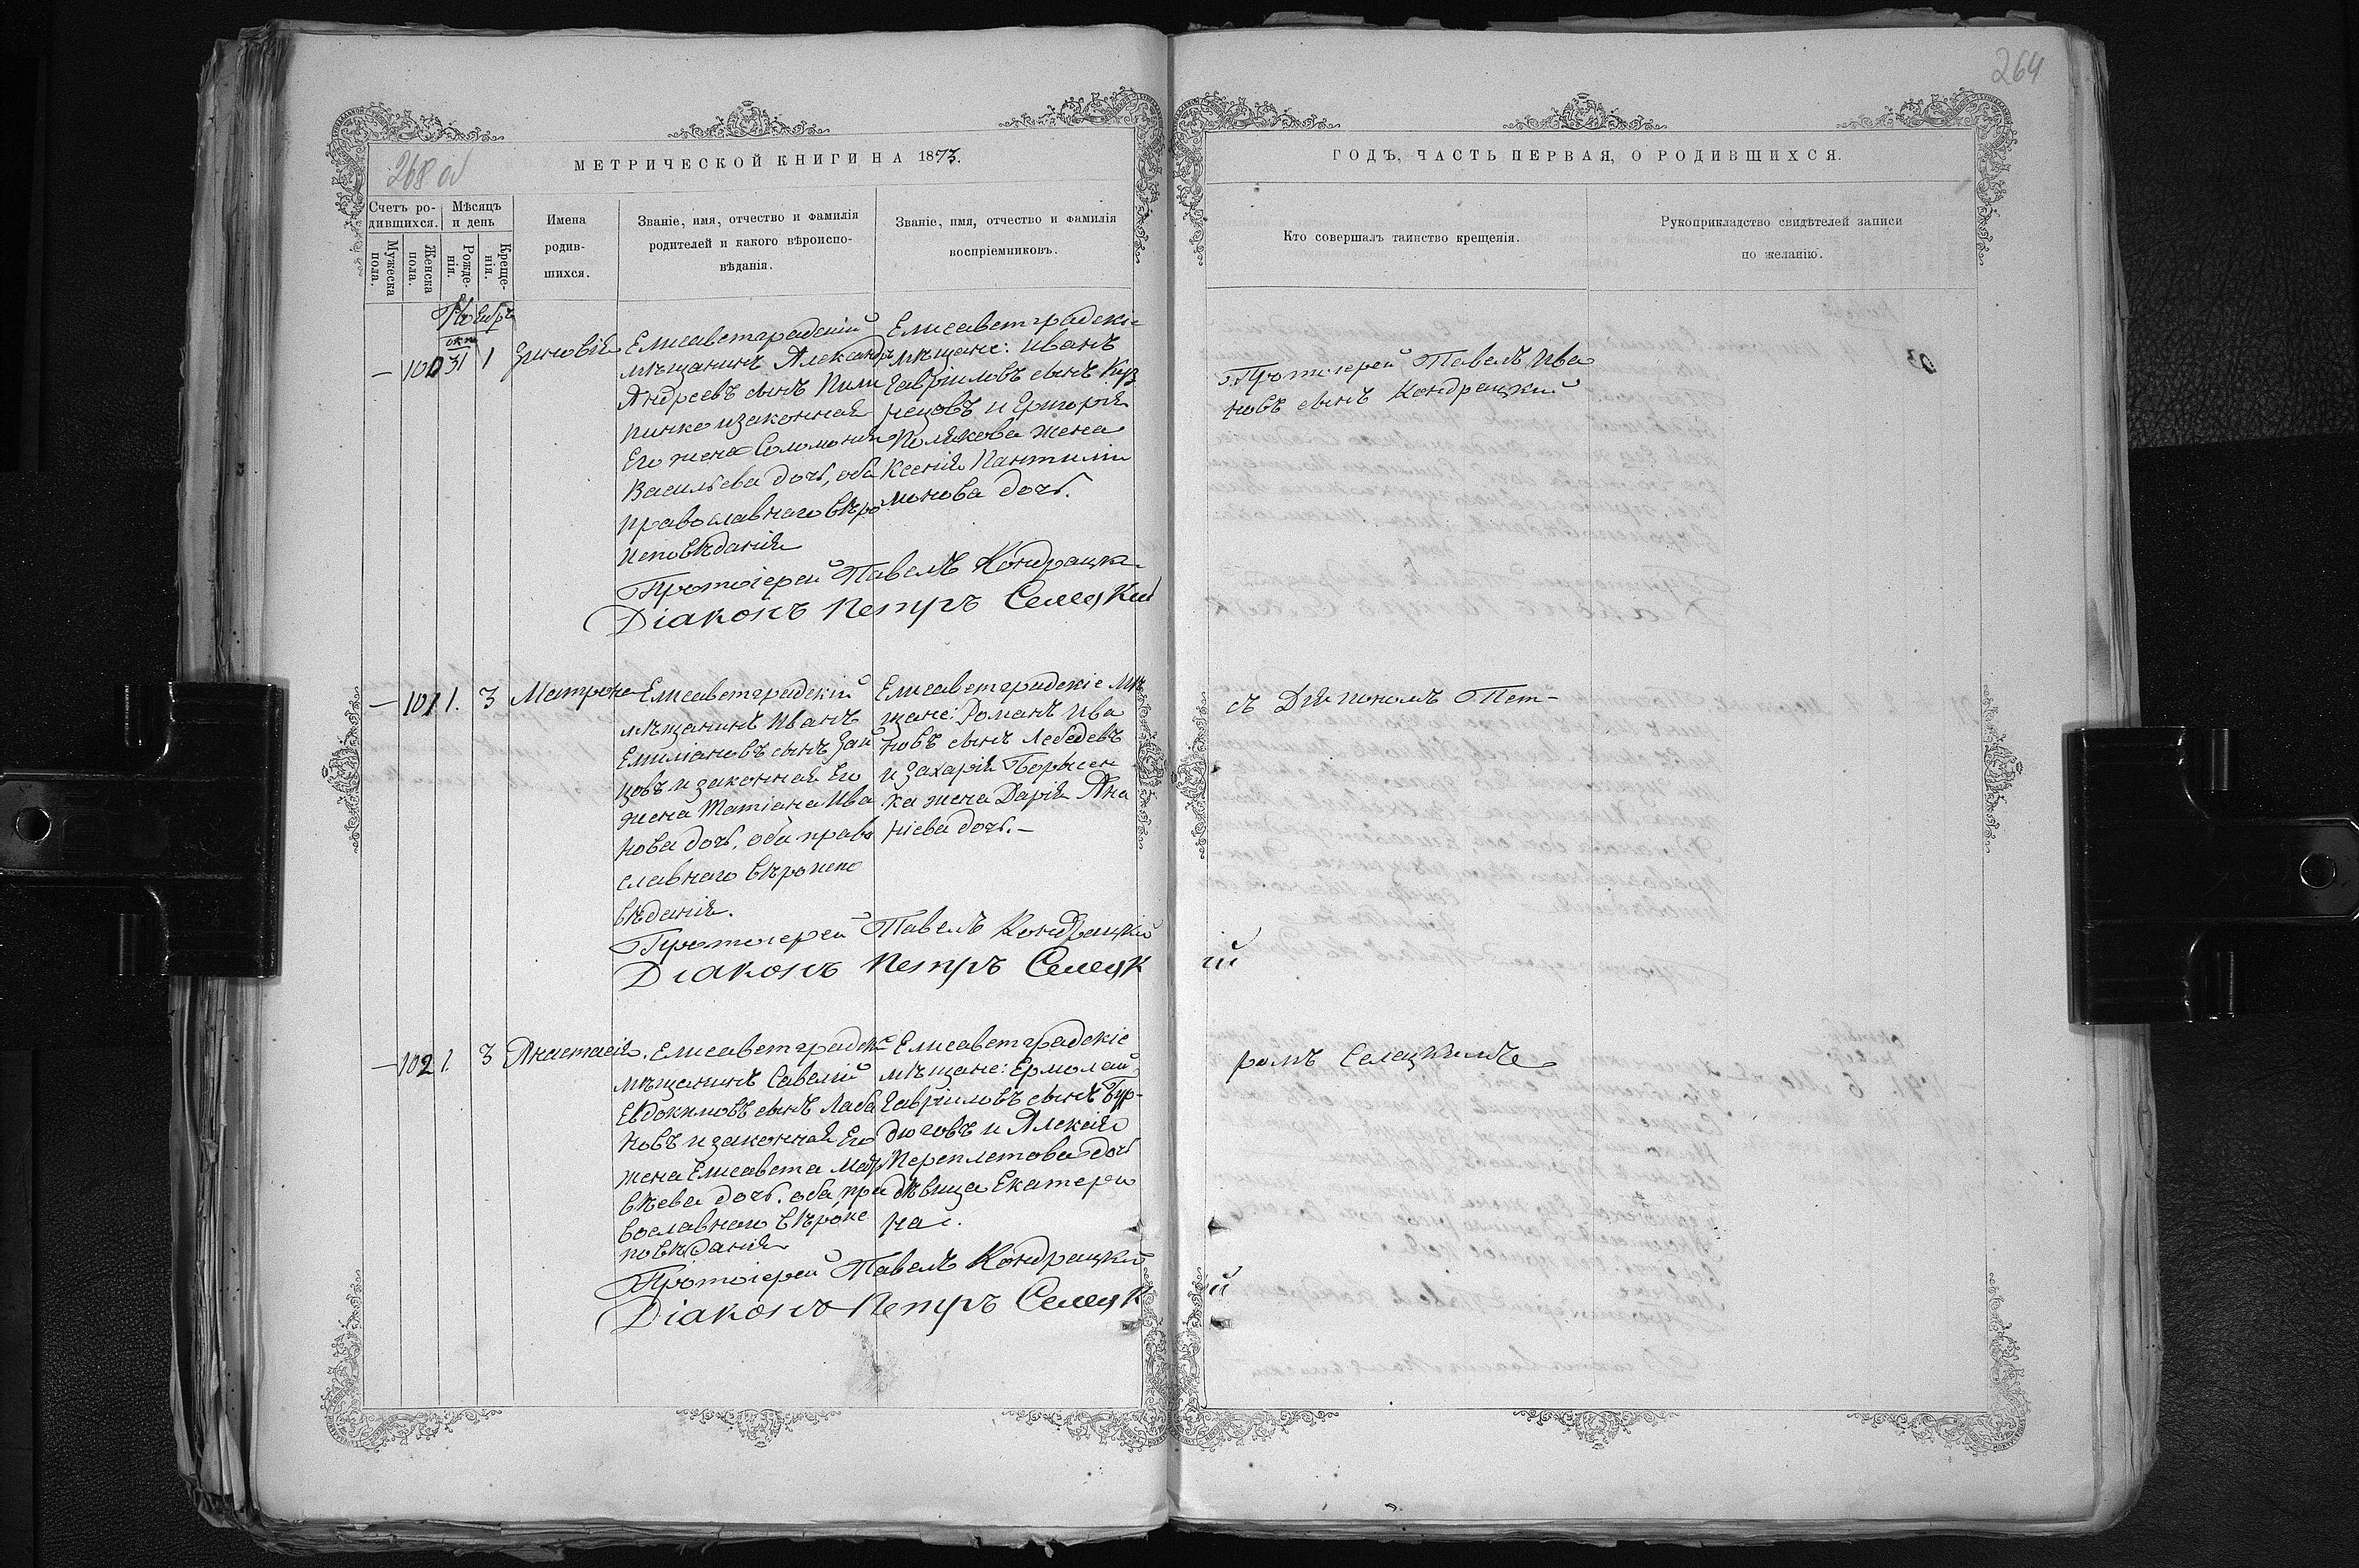 264
268 об
МЕТРИЧЕСКОЙ КНИГИ НА 1873.
ГОДЪ, ЧАСТЬ ПЕРВАЯ, О РОДИВШИХСЯ.
Счетъ ро-
дившихся.
Мужеска пола.
Женска пола.
Мѣсяцъ
и день
Рожде-
нія.
Креще-
нія.
Имена
родив-
шихся.
Званіе, имя, отчество и фамилія
родителей и какого вѣроиспо-
вѣданія.
Званіе, имя, отчество и фамилія
воспріемниковъ.
Кто совершалъ таинство крещенія.
Рукоприкладство свидѣтелей записи
по желанію.
Ноябрь
окт
— 100 31 1 Зиновія
Елисаветградскій
мѣщанинъ Александръ
Андреевъ сынъ Пили
пинко и законная
Его жена Соломонія
Васильева дочь, оба
православнаго вѣро
исповѣданія
Елисаветградскі
мѣщане: Иванъ
Гавріиловъ сынъ Куз
нецовъ и Григорія
Полякова жена
Ксенія Пантили
монова дочь.
Протоіерей Павелъ Кондрацкі
Діаконъ Петръ Селецкій
Протоіерей Павелъ Ива
новъ сынъ Кондрацкій
— 101 1. 3 Матрона
Елисаветградскій
мѣщанинъ Иванъ
Емиліановъ сынъ Зай
цовъ и законная Его
жена Татіана Ива
нова дочь, оба право
славнаго вѣроиспо
вѣданія.
Елисаветградскіе мѣ
щане: Романъ Ива
новъ сынъ Лебедевъ
и Захарія Борисен
ка жена Дарія Ана
ніева дочь. —
Протоіерей Павелъ Кондрацкій
Діаконъ Петръ Селецкій
съ Діякономъ Пет-
— 102 1. 3 Анастасія.
Елисаветградскій
мѣщанинъ Савелій
Евдокимовъ сынъ Лаба
новъ и законная Его
жена Елисавета Мат
вѣева дочь. оба пра
вославнаго вѣроис
повѣданія
Елисаветградскіе
мѣщане: Ермолай
Гавріиловъ сынъ Бур-
дюговъ и Алексія
Переплетова дочь
дѣвица Екатери
на.
Протоіерей Павелъ Кондрацкій
Діаконъ Петръ Селецкій
ромъ Селецкимъ